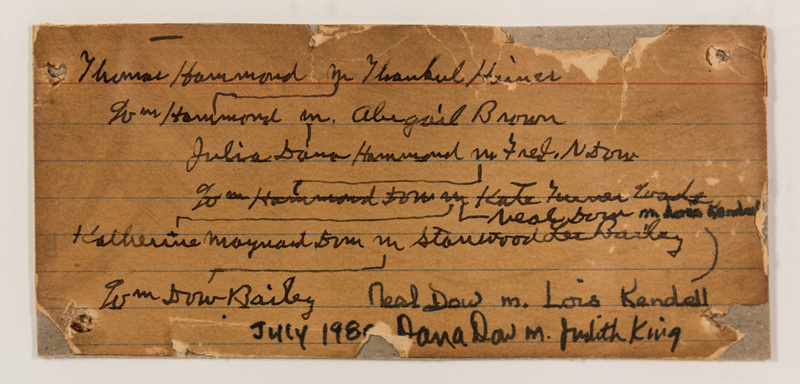 Thomas Hammond m Thankful Hiner
Wm Hammond m. Abigail Brown
Julia Dana Hammond m Fred. N Dow
Wm Hammond Dow m Kate Turner Wads
Neal Dow m Lois Kendall
Katherine Maynard Dow m Stanwood Lee Bailey
Wm Dow Bailey Neal Dow m. Lois Kendall
July 198 Dana Dow m. Judith King